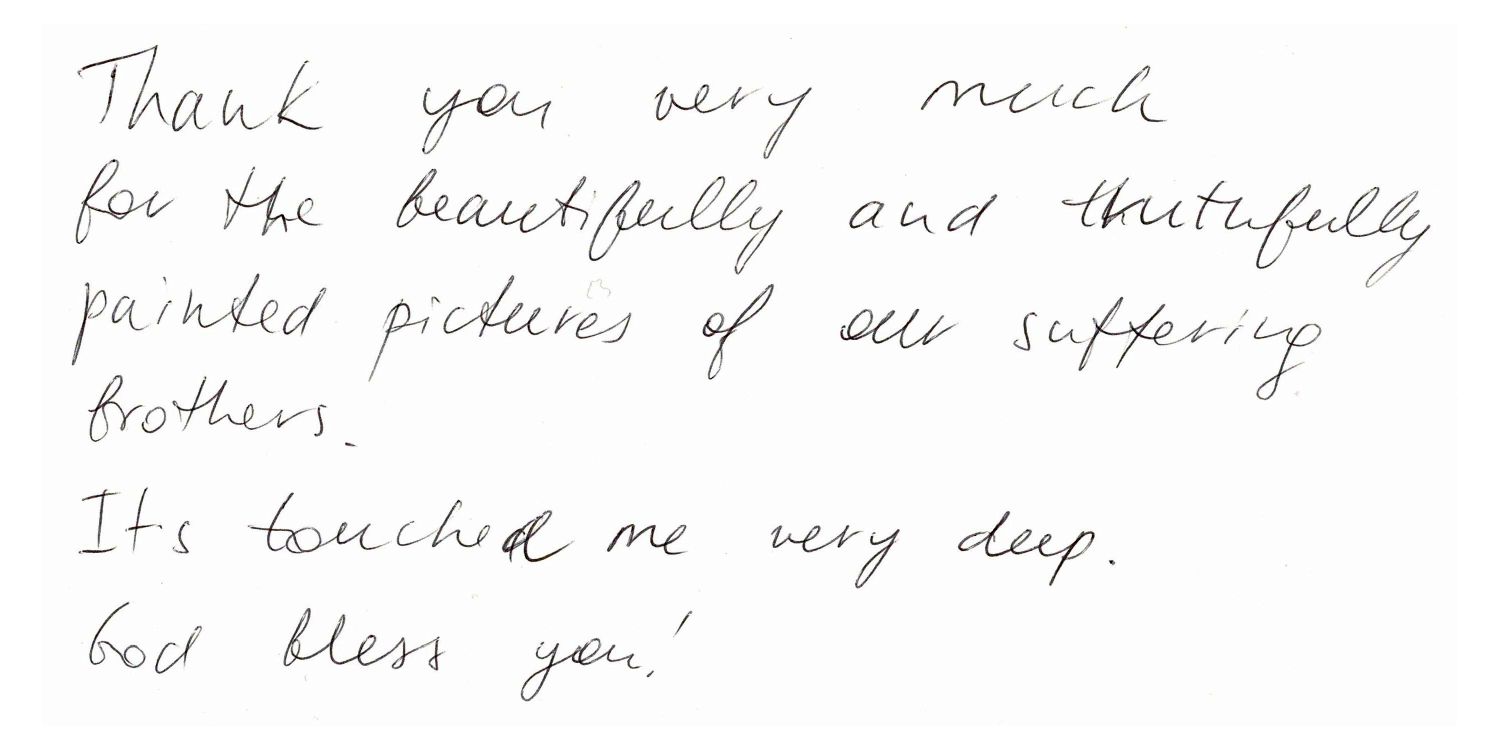 Thank you very much
for the beautifully and thuthfully
painted pictures of our suffering
brothers.
Its touched me very deep.
God bless you!